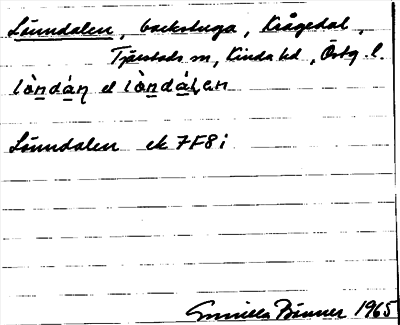 Lönndalen, backstuga, Krågedal,
Tjärstads sn, Kinda hd, Östg l.
lòndán el lòndálen
Lönndalen ek 7F8i
Gunilla Bönner 1965